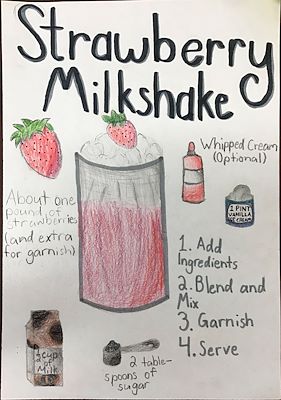 Strawberry
Milkshake
Whipped Cream
(Optional)
About one
pound of
strawberries
(and extra
for garnish)
1 PINT
VANILLA
ICE CREAM
1. Add
Ingredients
2. Blend and
Mix
3. Garnish
4. Serve
1/2 cup
of
Milk
2 table-
spoons of
sugar